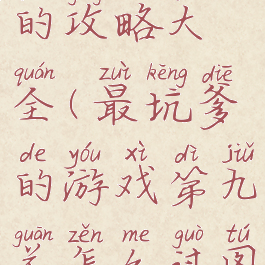 的攻略大
quán zuì kēng diē
全(最坑爹
de yóu xì dì jiǔ
的游戏第九
guān zěn me guò tú
关怎么过图